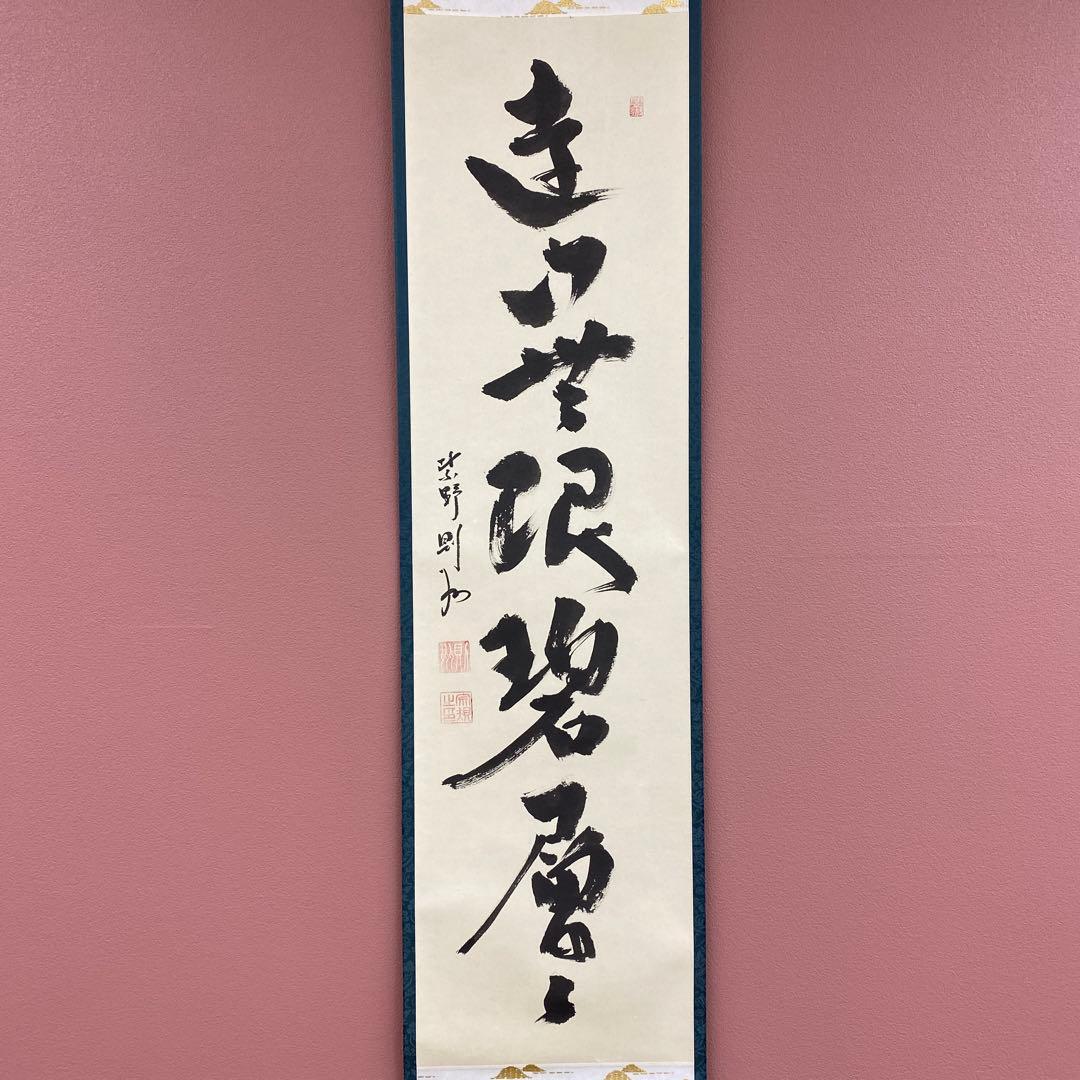 遠山無限碧層々
紫野 則州